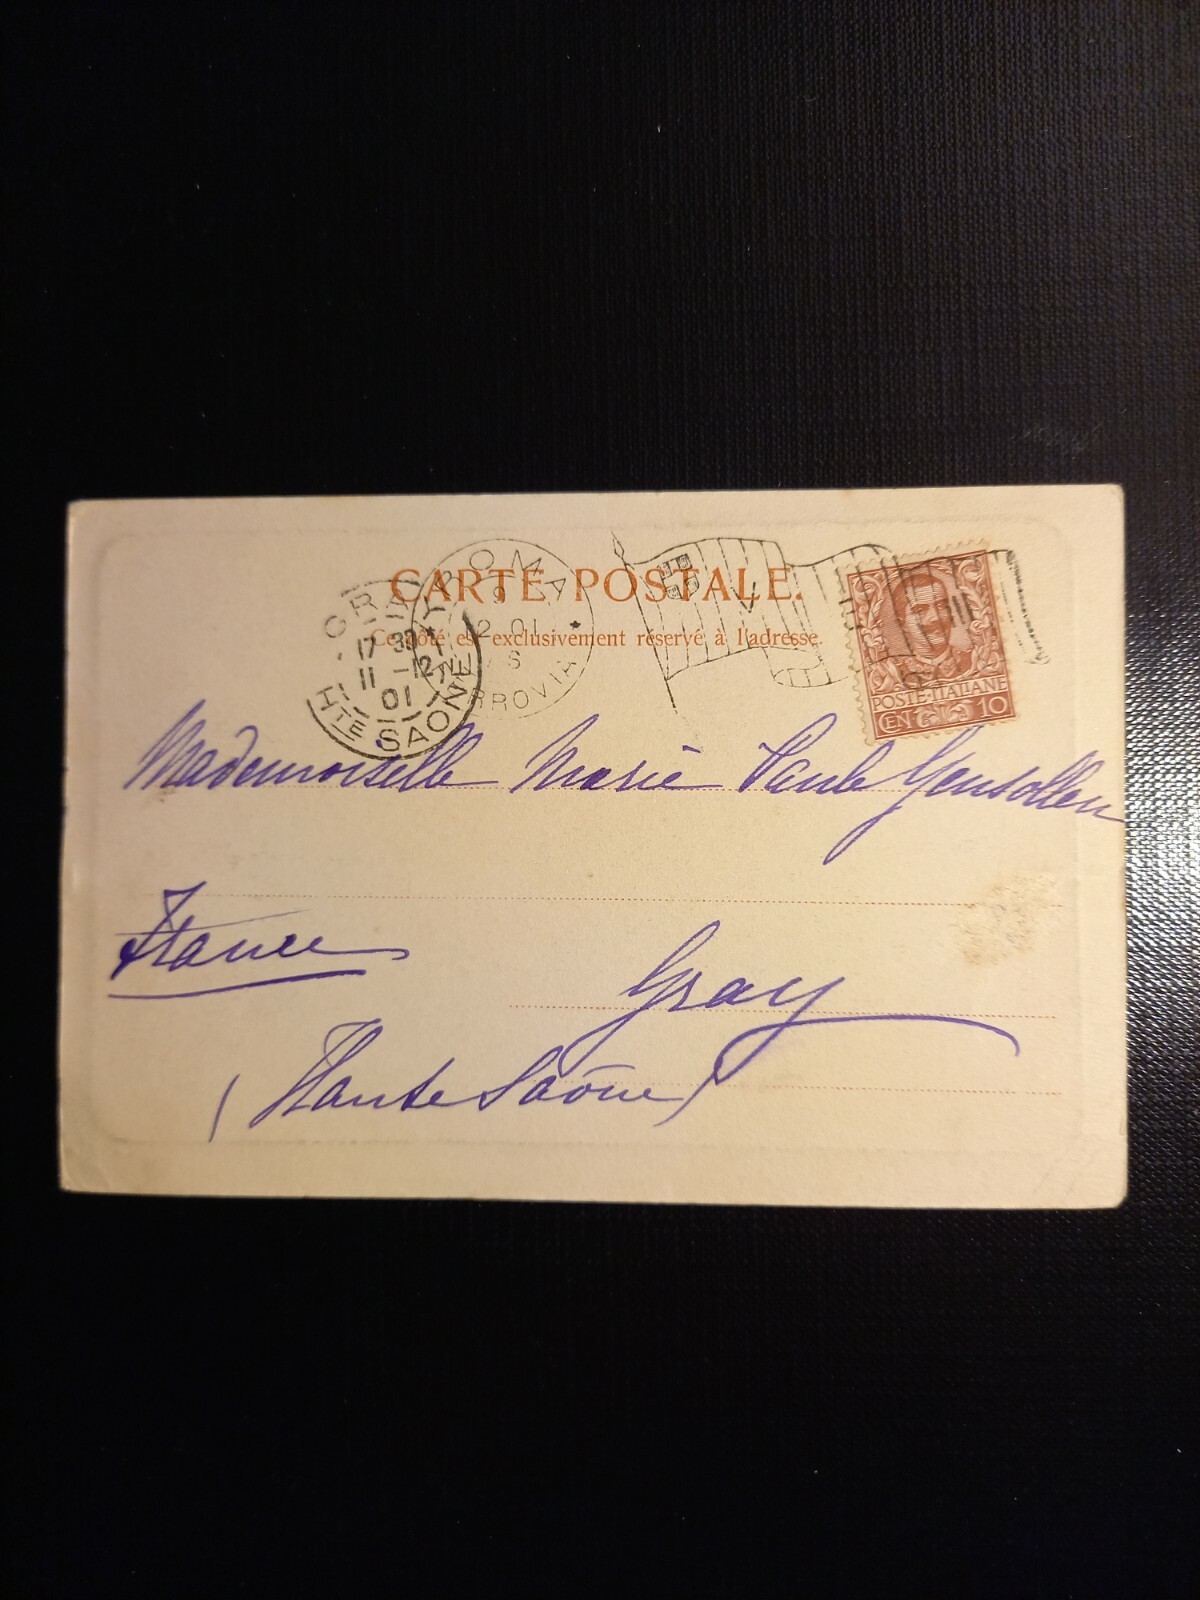 CARTE POSTALE.
Ce côté est exclusivement réservé à l'adresse.
ROMA
12 01
FERROVIA
GRAY
17 30
11 -12
01
HTE SAONE
POSTE·ITALIANE
CEN 10
Mademoiselle Marie Paule Gensollen
France
Gray
(Haute Saône)